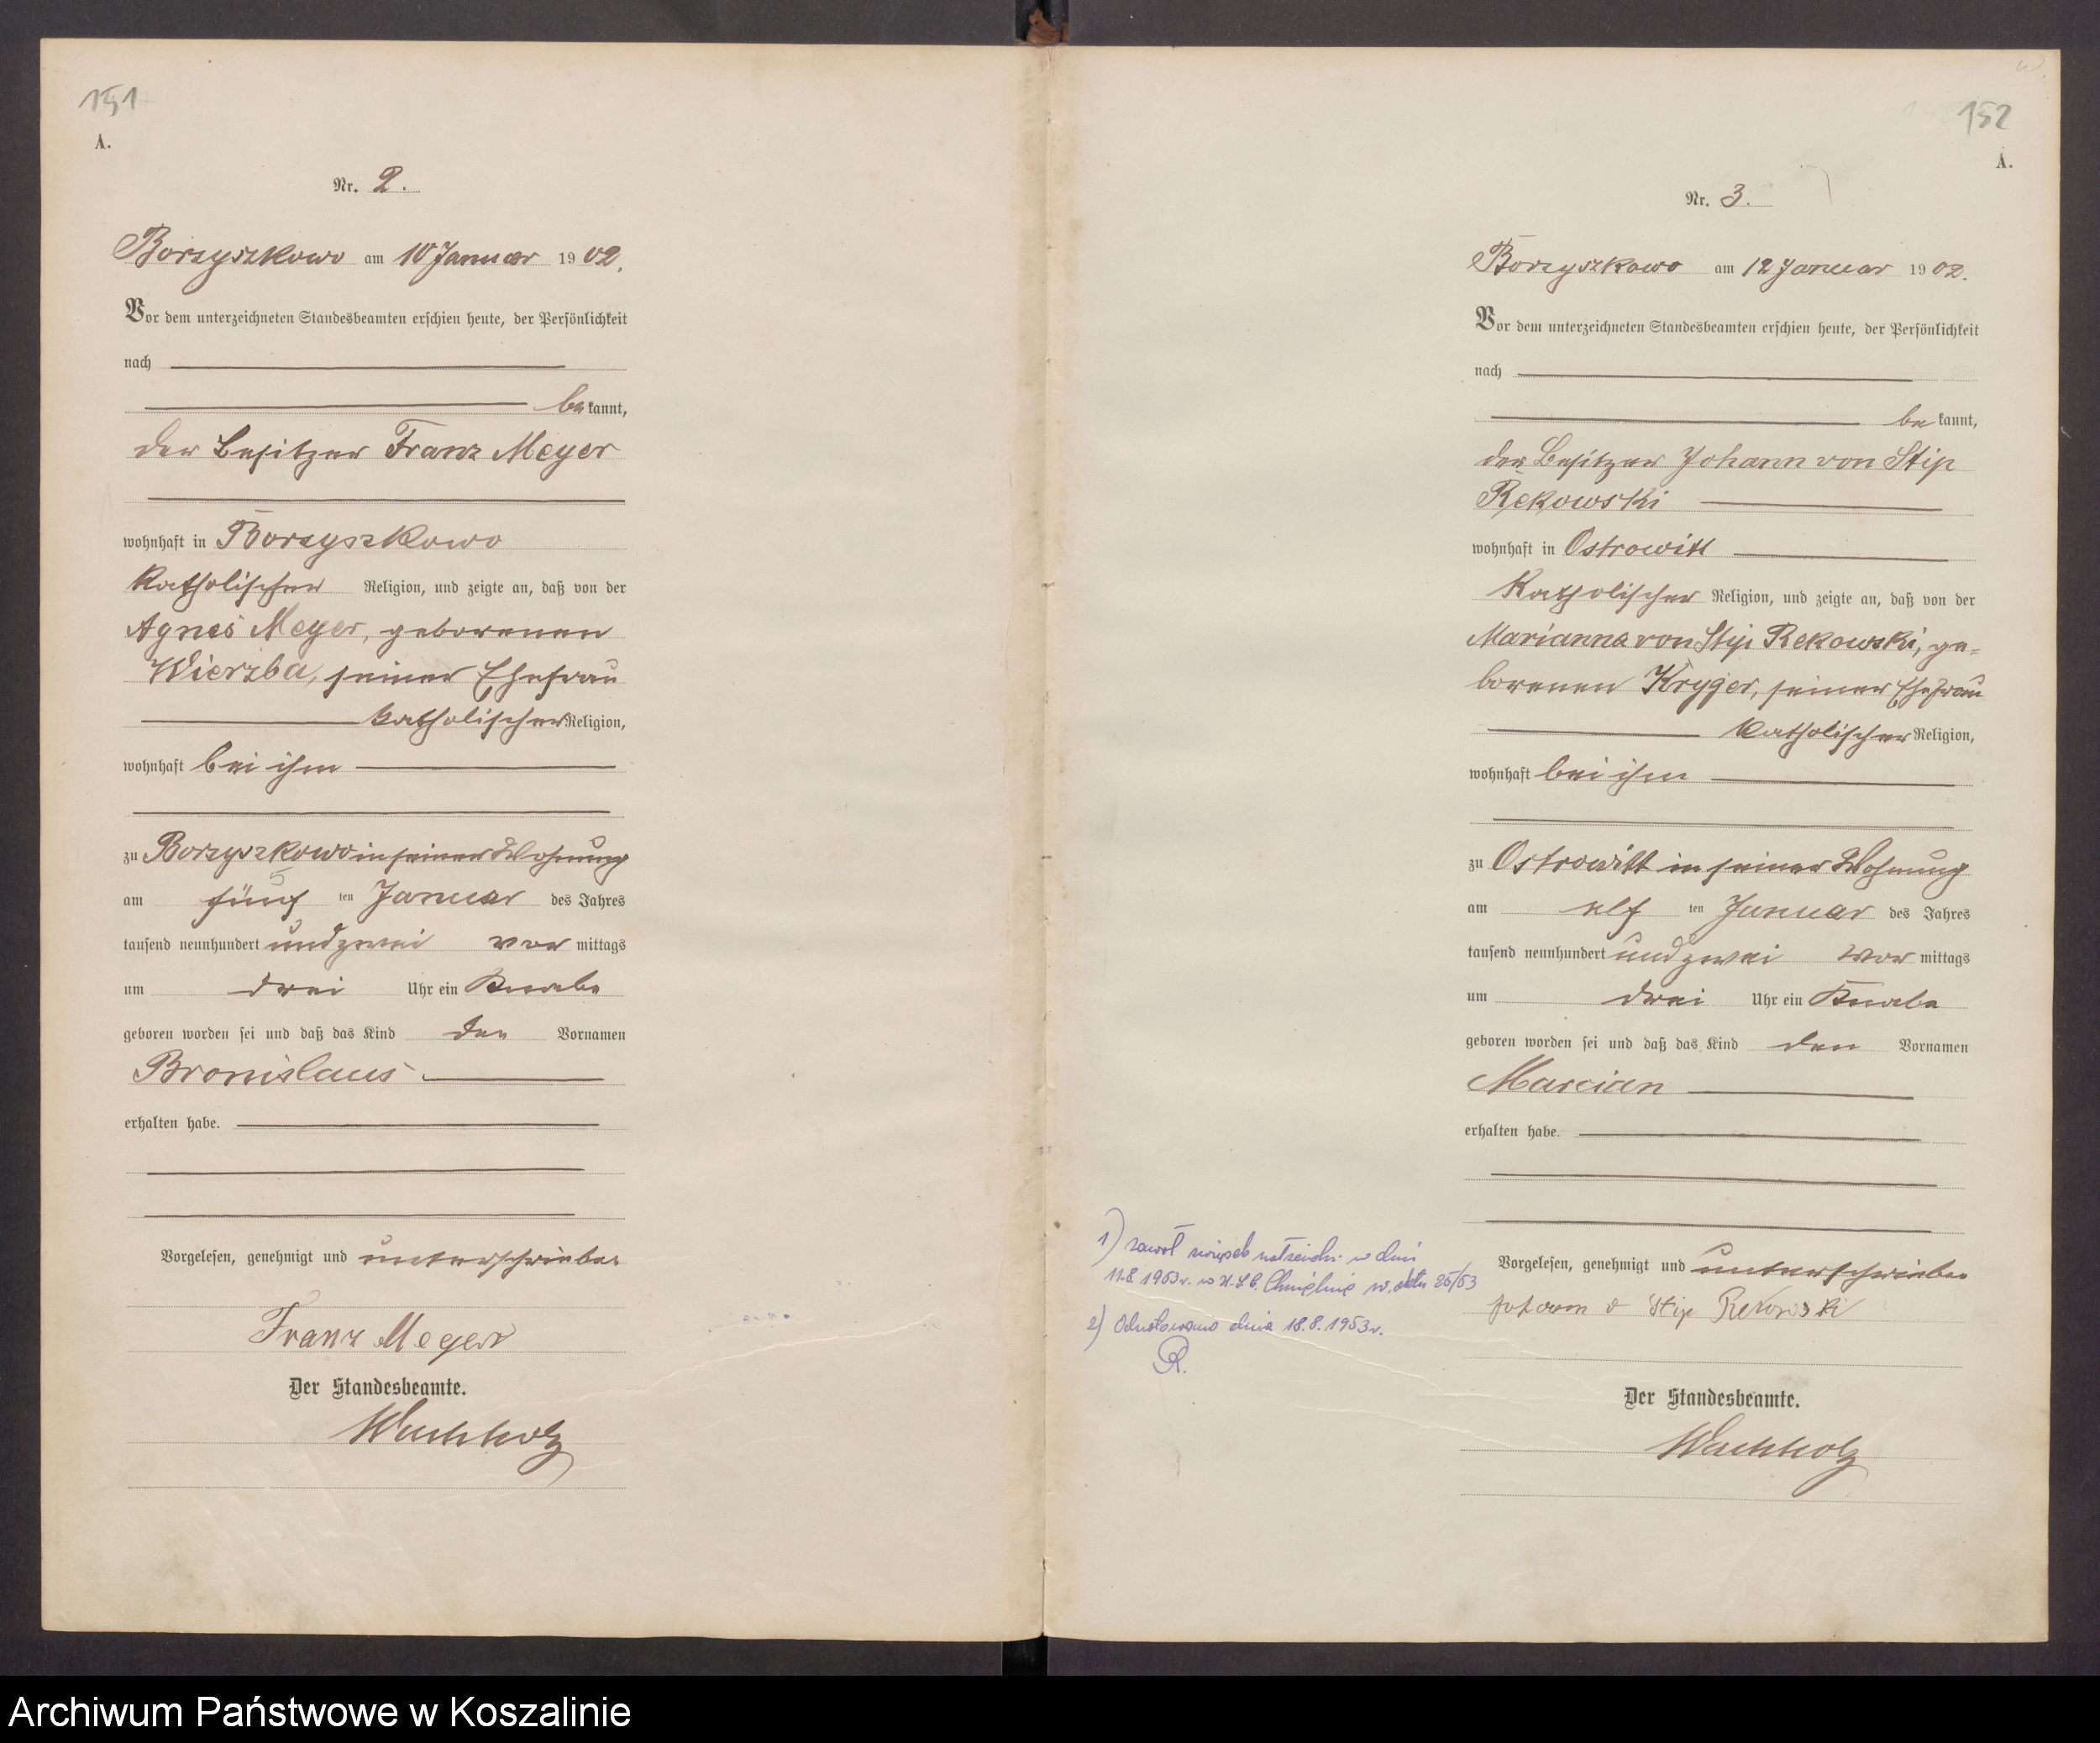 151
A.
Nr. 2.
Borzyszkowo am 10 Januar 1902.
Vor dem unterzeichneten Standesbeamten erschien heute, der Persönlichkeit
nach
be kannt,
der Besitzer Franz Meyer
wohnhaft in Borzyszkowo
katholischer Religion, und zeigte an, daß von der
Agnes Meyer, geborenen
Wierzba, seiner Ehefrau
katholischer Religion,
wohnhaft bei ihm
zu Borzyszkowo in seiner Wohnung
am fünf ten Januar des Jahres
tausend neunhundert und zwei vor mittags
um drei Uhr ein Knabe
geboren worden sei und daß das Kind den Vornamen
Bronislaus
erhalten habe.
Vorgelesen, genehmigt und unterschrieben
Franz Meyer
Der Standesbeamte.
Wachholz
152
A.
Nr. 3.
Borzyszkowo am 12 Januar 1902.
Vor dem unterzeichneten Standesbeamten erschien heute, der Persönlichkeit
nach
be kannt,
der Besitzer Johann von Stip
Rekowski
wohnhaft in Ostrowitt
katholischer Religion, und zeigte an, daß von der
Marianna von Stip Rekowski, ge=
borenen Kryger, seiner Ehefrau
katholischer Religion,
wohnhaft bei ihm
zu Ostrowitt in seiner Wohnung
am elf ten Januar des Jahres
tausend neunhundert und zwei vor mittags
um drei Uhr ein Knabe
geboren worden sei und daß das Kind den Vornamen
Marcian
erhalten habe.
Vorgelesen, genehmigt und unterschrieben
Johann v Stip Rekowski
Der Standesbeamte.
Wachholz
1) zawarł związek małżeński w dniu
11.8.1953r. w U.S.C. nr. aktu 25/53
2) Odnotowano dnia 18.8.1953r.
R.
Archiwum Państwowe w Koszalinie